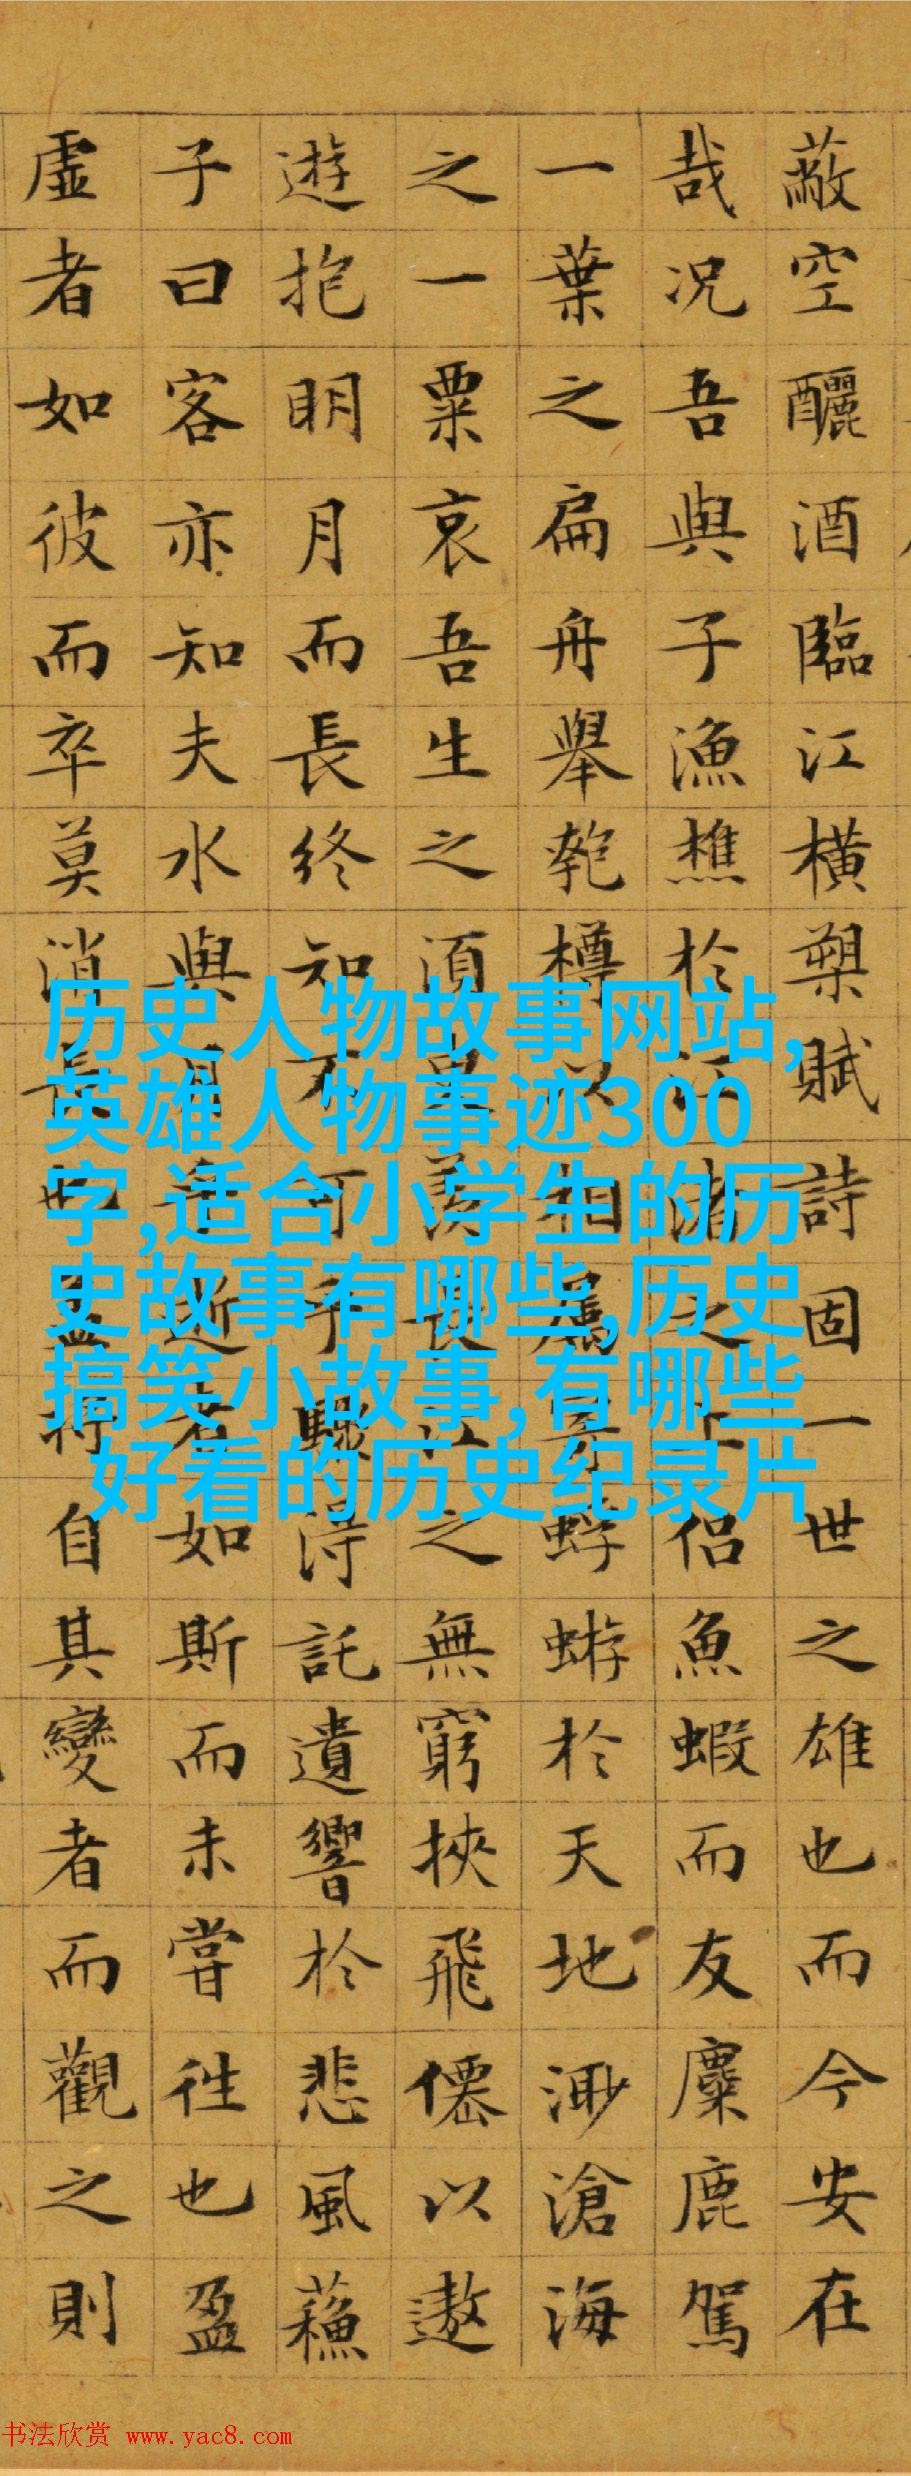 蔽空釃酒臨江橫槊賦詩固一世之雄也而今安在
哉况吾與子漁樵於江渚之上侶魚蝦而友麋鹿駕
一葉之扁舟舉匏樽以相屬寄蜉蝣於天地渺滄海
之一粟哀吾生之須臾羨長江之無窮挾飛僊以遨
遊抱明月而長終知不可乎驟得託遺響於悲風蘓
子曰客亦知夫水與月乎逝者如斯而未嘗往也盈
虛者如彼而卒莫消長也蓋將自其變者而觀之則
历史人物故事网站,
英雄人物事迹300
字,适合小学生的历
史故事有哪些,历史
搞笑小故事,有哪些
好看的历史纪录片
书法欣赏 www.yac8.com